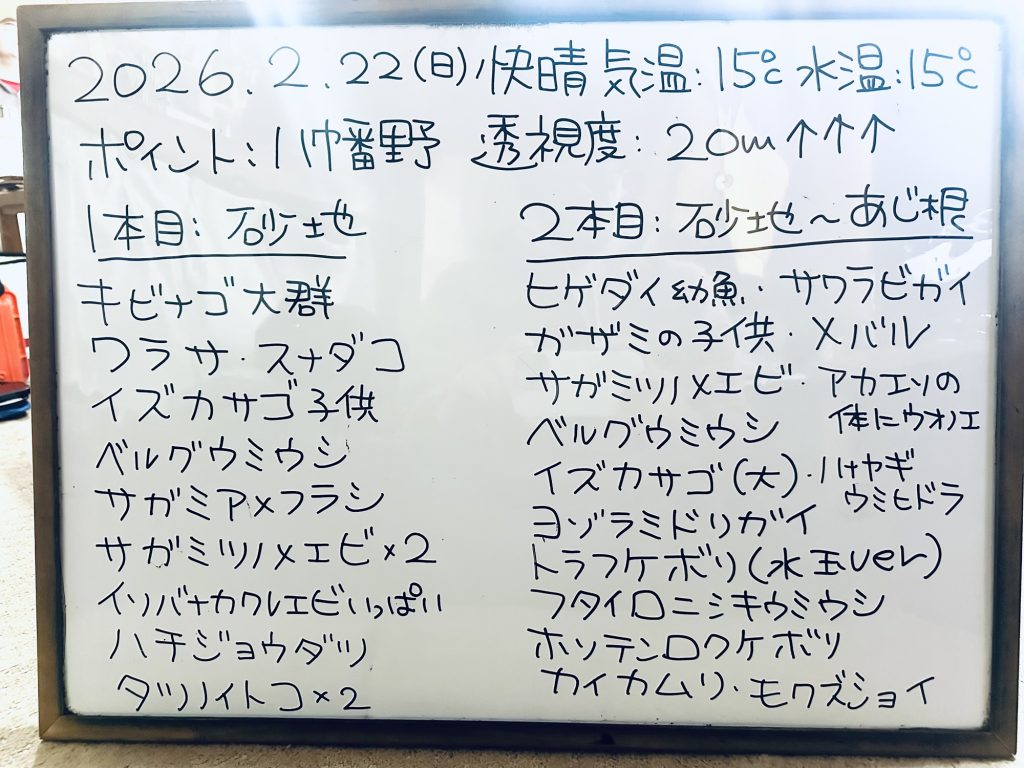 2026.2.22(日)快晴 気温:15℃ 水温:15℃
ポイント:八幡野 透視度:20m↑↑↑
1本目:砂地
キビナゴ大群
ワラサ・スナダコ
イズカサゴ子供
ベルグウミウシ
サガミアメフラシ
サガミツノメエビ×2
イソバナカクレエビいっぱい
ハチジョウダツ
タツノイトコ×2
2本目:砂地~あじ根
ヒゲダイ幼魚・サワラビガイ
ガザミの子供・メバル
サガミツノメエビ・アカエソの
体にウオノエ
ベルグウミウシ
イズカサゴ(大)・ハナヤギ
ウミヒドラ
ヨゾラミドリガイ
トラフケボリ(水玉ver)
フタイロニシキウミウシ
ホソテンロクケボリ
カイカムリ・モクズショイ